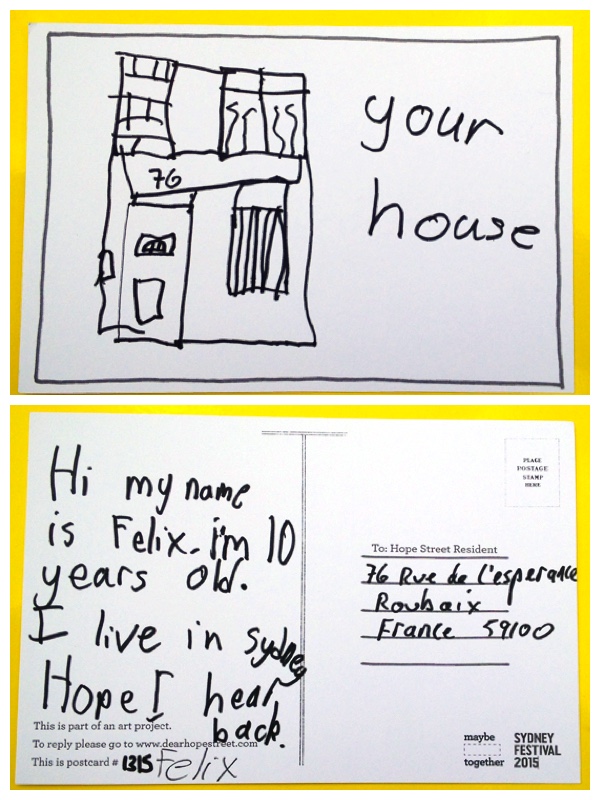 76
your
house
Hi my name
is Felix. i'm 10
years old.
I live in sydney
Hope I hear
back.
This is part of an art project.
To reply please go to www.dearhopestreet.com
This is postcard # 1315 Felix
PLACE
POSTAGE
STAMP
HERE
To: Hope Street Resident
76 Rue de l'esperance
Roubaix
France 59100
maybe
together
SYDNEY
FESTIVAL
2015